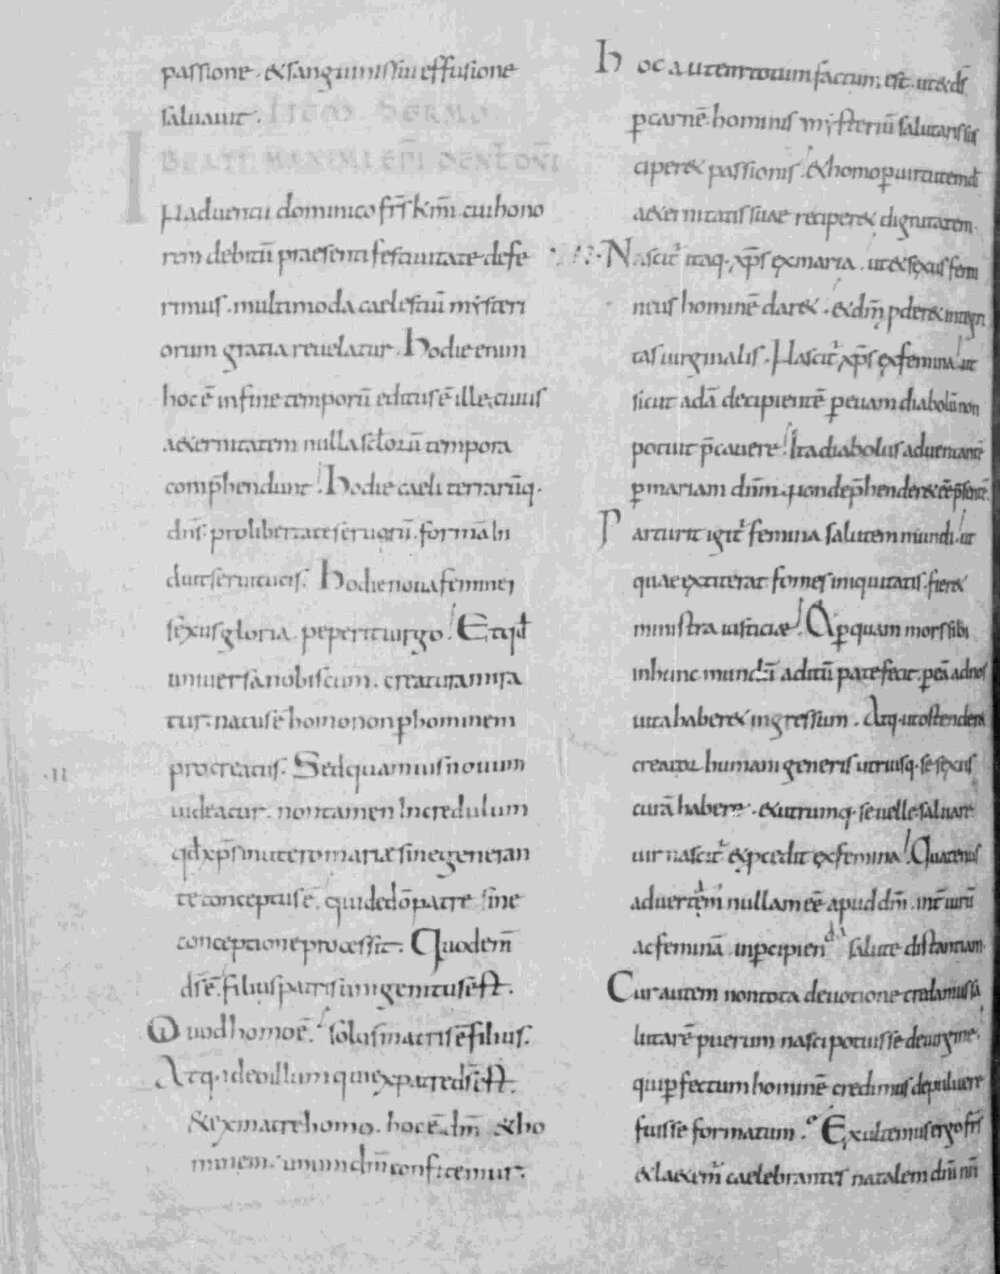 passione · & sanguinis sui effusione
saluauit · ITEM SERMO
BEATI MAXIMI EP̄I DE NAT̄ DN̄I
IN aduentu dominico fr̄s km̄ · cui hono
rem debitū praesenti festiuitate defe
rimus · multimoda caelestiū mysteri
orum gratia reuelatur · Hodie enim
hoc ē in fine temporū editus ē ille · cuius
aeternitatem nulla sc̄lorū tempora
comp̄hendunt · Hodie caeli terrarūq·
dn̄s · pro libertate seruorū · formā in
duit seruitutis · Hodie noua feminei
sexus gloria · peperit uirgo · Et qd̄
uniuersa nobiscum · creatura mira
tur · natus ē homo non p hominem
procreatus · Sed quamuis nouum
uideatur · non tamen incredulum
qd̄ xp̄s in utero mariae sine generan
te conceptus ē · qui de dō patre sine
conceptione processit · Quod em̄
ds̄ ē · filius patris unigenitus est ·
Quod homo ē · solus matris ē filius ·
Atq· ideo illum qui ex patre ds̄ est ·
& ex matre homo · hoc ē dm̄ & ho
minem · unum dm̄ confitemur ·
Hoc autem totum factum est · ut & ds̄
p carnē hominis mysteriū salutaris sus
ciper& passionis · & homo p uirtutem dī
aeternitatis suae reciper& dignitatem ·
Nascit᷑ itaq· xp̄s ex maria · ut & sexus femi
neus hominē dar& · & dm̄ proder& integri
tas uirginalis · Nascit᷑ xp̄s ex femina · ut
sicut adā decipientē p euam diabolū non
potuit p̄cauere · Ita diabolus aduentantē
p mariam dnm̄ · non dep̄hender& ē p̄sentē
Parturit igit᷑ femina salutem mundi · ut
quae extiterat fomes iniquitatis · fier&
ministra iustitiae · A p quam mors sibi
in hunc mundū aditū patefecit · p eā ad nos
uita haber& ingressum · Atq· ut ostender&
creator humani generis utriusq· se sexus
curā habere · & utrumq· se uelle saluare
uir nascit᷑ & pcedit ex femina · Quatenus
aduertem̄ nullam eē apud dm̄ · int̄ uirū
ac feminā in pcipienda salute distantiam ·
Cur autem non tota deuotione credamus sa
lutarē puerum nasci potuisse de uirgine ·
qui p fectum hominē credimus de puluere
fuisse formatum · Exultemus ergo fr̄s
& laetem̄ caelebrantes natalem dnī nrī